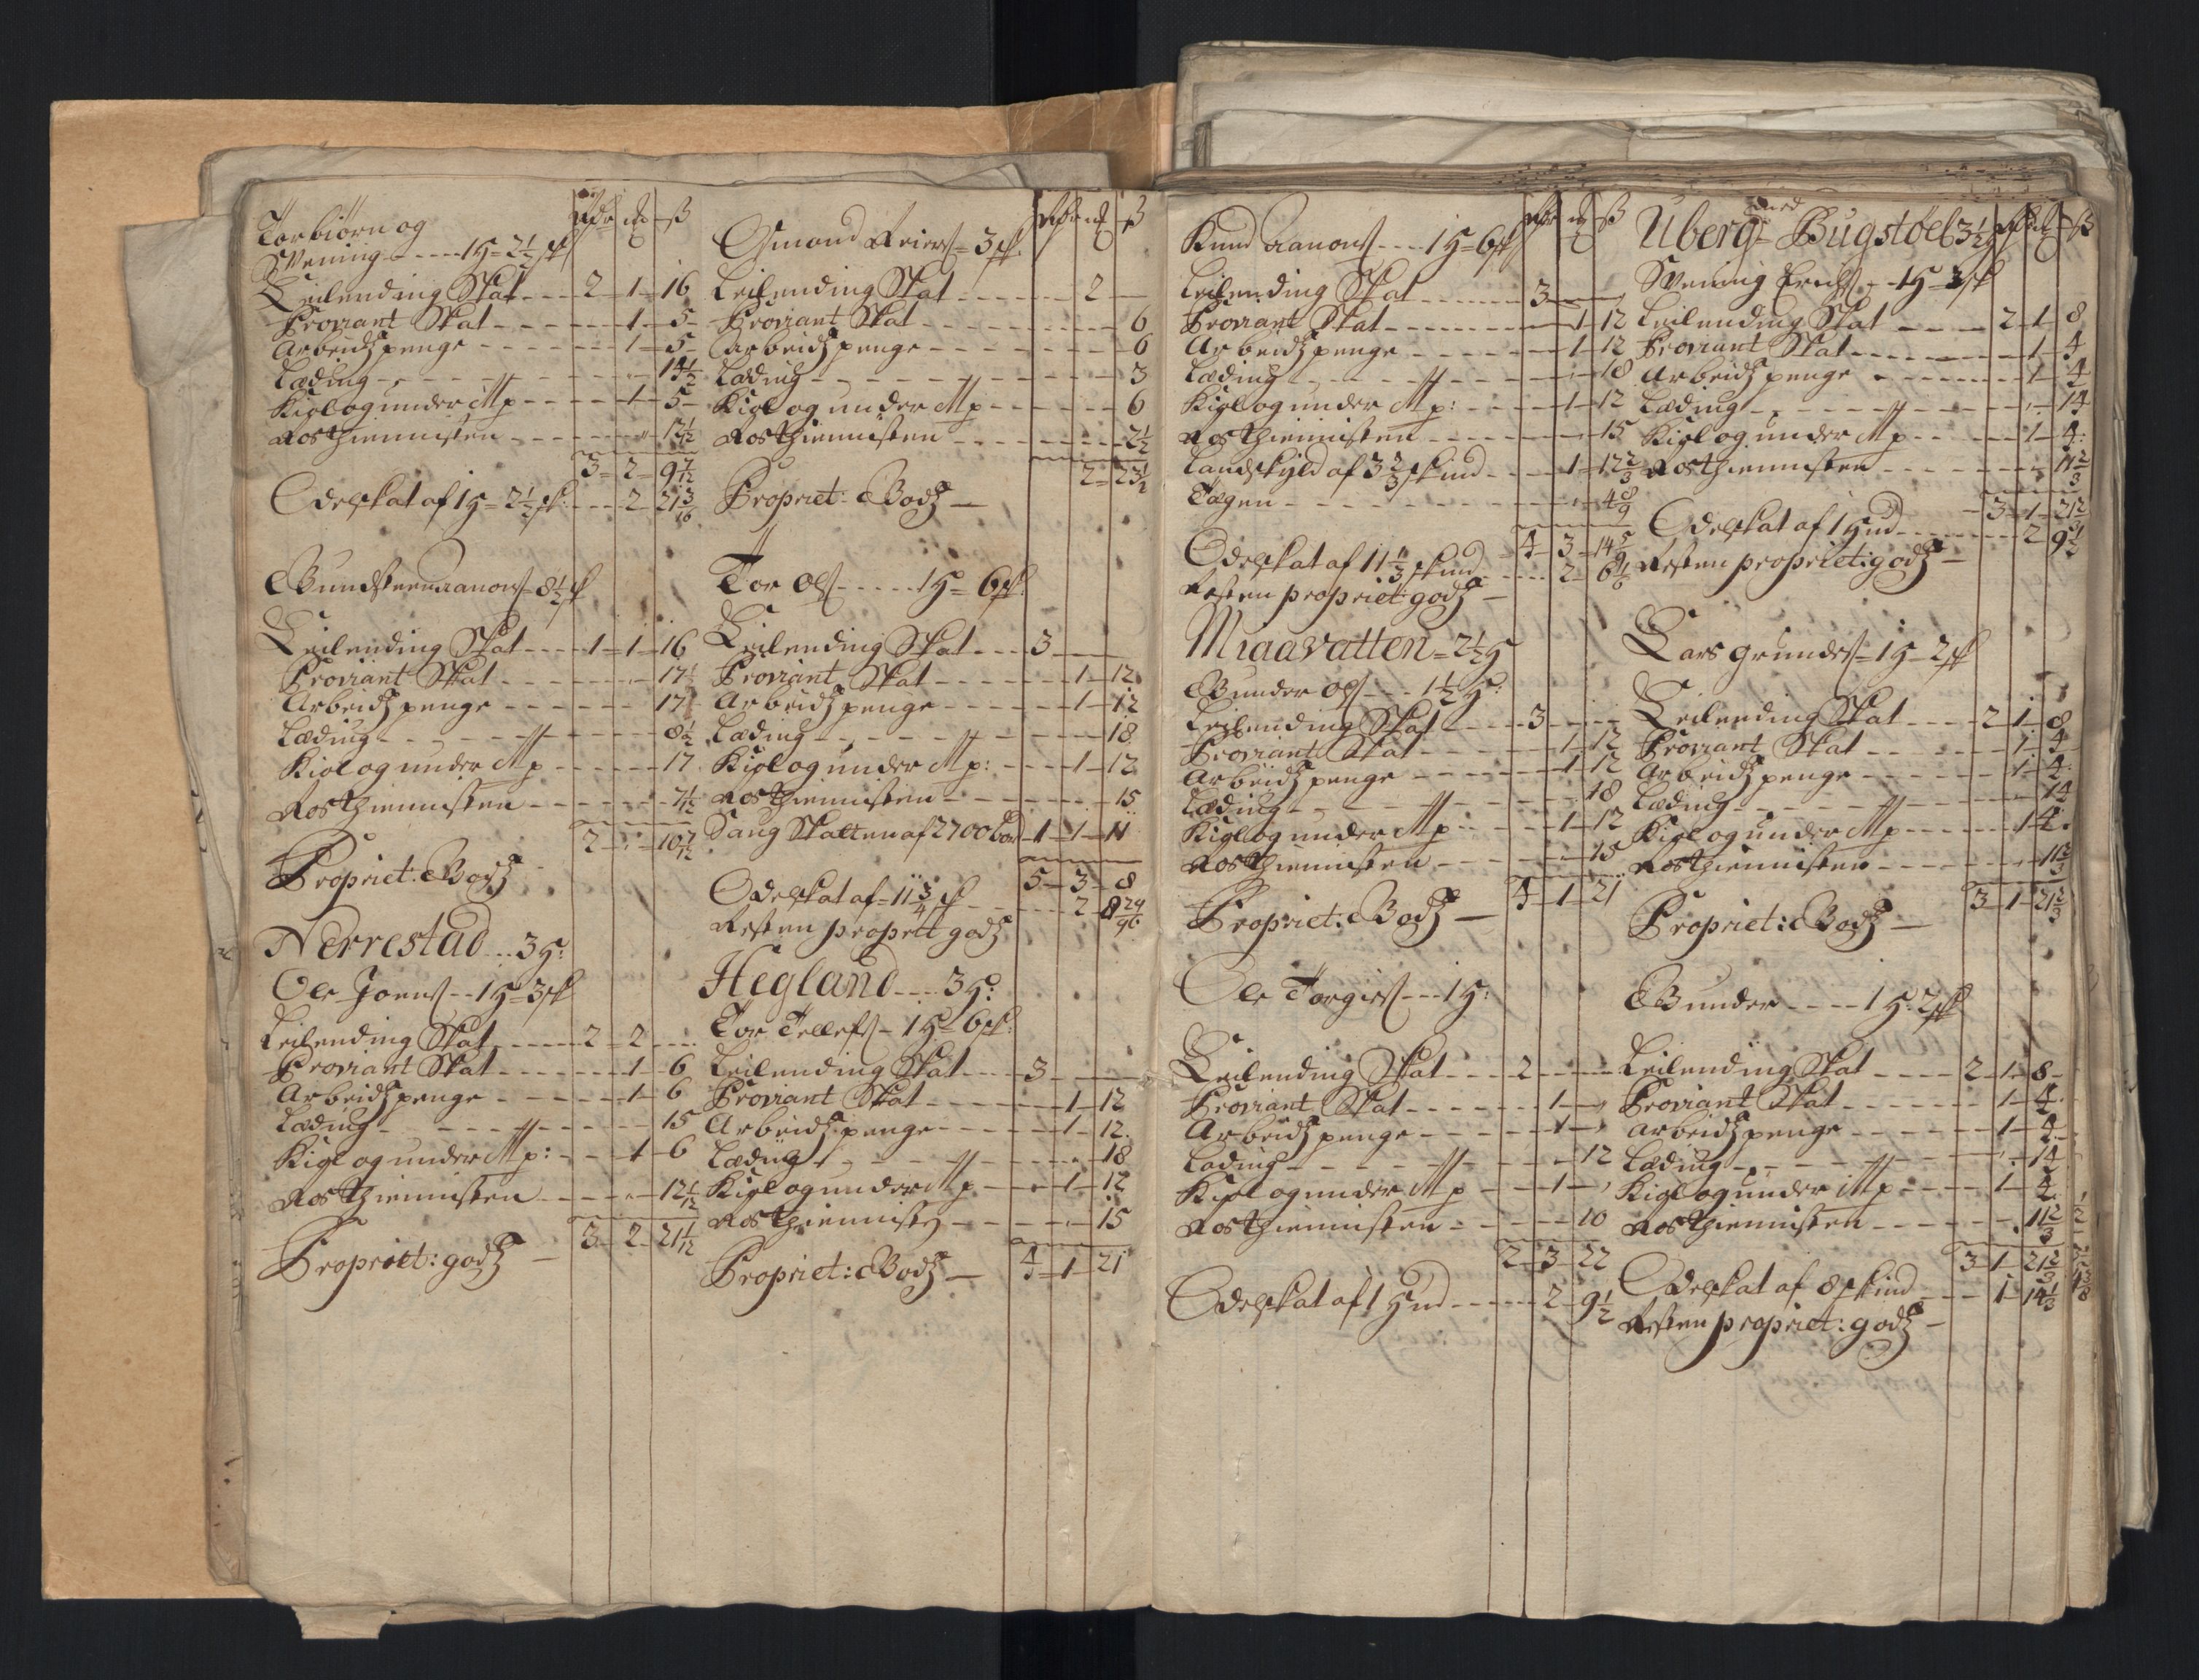 Torbiørn og Rdr mk ß
Svening ---- 1 H = 2½ sk
Leilending Skat --- 2 - 1 - 16
Proviant Skat --- 1 - 5
Arbeidspenge --- 1 - 5
Læding --- 14½
Kiøl og under Mp --- 1 - 5
Rosthiennisten --- 12 1/12
3 = 2 - 9 7/12
Odelskat af 1 H = 2½ sk: --- 2 - 21 3/16
Gundsteen Aanons = 8½ sk
Leilending Skat --- 1 - 1 - 16
Proviant Skat --- 17
Arbeidspenge --- 17
Læding --- 8½
Kiøl og under Mp --- 17
Rosthiennisten --- 7 1/12
2 - " - 10 7/12
Propriet: Godz
Nerrestad --- 3 H:
Ole Joens -- 1 H = 3 sk
Leilending Skat --- 2 - 2
Proviant Skat --- 1 - 6
Arbeidspenge --- 1 - 6
Læding --- 15
Kiøl og under Mp: --- 1 - 6
Rosthiennisten --- 12 1/12
3 - 2 - 21 1/12
Propriet: godz —
Rdr mk ß
Osmond Reiers = 3 sk
Leilending Skat --- 2 —
Proviant Skat --- 6
Arbeidspenge --- 6
Læding --- 3
Kiøl og under Mp --- 6
Rosthiennisten --- 2½
2 = 23½
Propriet: Godz —
Tor Ols --- 1 H = 6 sk:
Leilending Skat --- 3
Proviant Skat --- 1 - 12
Arbeidspenge --- 1 - 12
Læding --- 18
Kiøl og under Mp: --- 1 - 12
Rosthiennisten --- 15
Saug Skatten af 2700 bord - 1 - 1 - 11
5 - 3 - 8
Odelskat af = 11¾ sk --- 2 -
Resten propriet godz
Hegland --- 3 H:
Tor Tellefs - 1 H = 6 sk:
Leilending Skat --- 3
Proviant Skat --- 1 - 12
Arbeidspenge --- 1 - 12
Læding --- 18
Kiøl og under Mp --- 1 - 12
Rosthiennisten --- 15
4 - 1 - 21
Propriet: Godz —
Rdr mk ß
Knud Aanons --- 1 H = 6 sk
Leilending Skat --- 3
Proviant Skat --- 1 - 12
Arbeidspenge --- 1 - 12
Læding --- 18
Kiøl og under Mp: --- 1 - 12
Rosthiennisten --- 15
Landskyld af 3⅔ skind --- 1 - 12⅔
Tagen --- 4 8/9
4 - 3 - 14 5/9
Odelskat af 11⅓ skind --- 2 - 6 1/6
Resten propriet: godz —
Miaavatten = 2½ H
Gunder Ols --- 1½ H:
Leilending Skat --- 3
Proviant Skat --- 1 - 12
Arbeidspenge --- 1 - 12
Læding --- 18
Kiøl og under Mp --- 1 - 12
Rosthiennisten --- 15
4 - 1 - 21
Propriet: Godz —
Ole Torgiers --- 1 H:
Leilending Skat --- 2
Proviant Skat --- 1 -
Arbeidspenge --- 1 -
Læding --- 12
Kiøl og under Mp --- 1 -
Rosthiennisten --- 10
2 - 3 - 22
Odelskat af 1 Hud --- 2 - 9½
Rdr mk ß
Uberg = Bugstøel 3½ H
Svening Erichs - 1 H - 3 sk
Leilending Skat --- 2 - 1 - 8
Proviant Skat --- 1 - 4
Arbeidspenge --- 1 - 4
Læding --- 14
Kiøl og under Mp --- 1 - 4
Rosthiennisten --- 11⅔
3 - 1 - 21⅔
Odelskat af 1 Hud --- 2 - 9½
Resten propriet: godz —
Lars Grunders = 1 H - 2 sk
Leilending Skat --- 2 - 1 - 8
Proviant Skat --- 1 - 4
Arbeidspenge --- 1 - 4
Læding --- 14
Kiøl og under Mp --- 1 - 4
Rosthiennisten --- 11⅔
3 - 1 - 21⅔
Propriet: Godz —
Gunder --- 1 H: 2 sk
Leilending Skat --- 2 - 1 - 8
Proviant Skat --- 1 - 4
Arbeidspenge --- 1 - 4
Læding --- 14
Kiøl og under Mp --- 1 - 4
Rosthiennisten --- 11⅔
3 - 1 - 21⅔
Odelskat af 8 skind --- 1 - 14⅓
Resten propriet: godz —